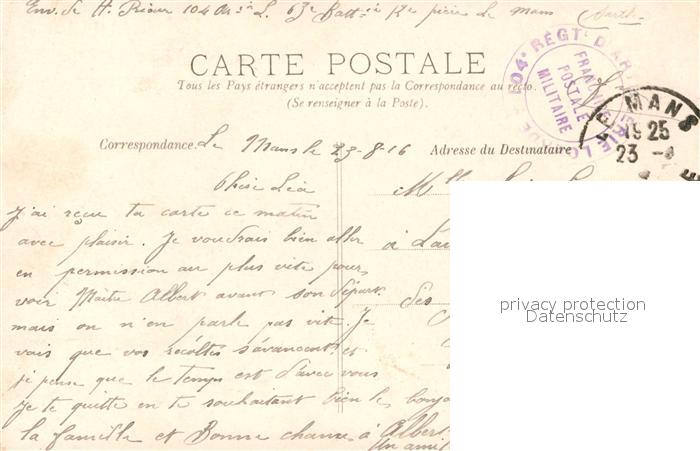 Env. de H. Priour 104 L. 63e Batt Le Mans Sarthe
CARTE POSTALE
Tous les Pays étrangers n'acceptent pas la Correspondance au recto.
(Se renseigner à la Poste).
104e RÉGT D'AR
FRANCHISE
POSTALE
MILITAIRE
LE MANS
19 25
23 -
Correspondance. Le Mans le 23-8-16
Adresse du Destinataire
Chère Léa
Mlle
J'ai reçu ta carte ce matin
avec plaisir. Je voudrais bien aller
à
en permission au plus vite pour
voir Maître Albert avant son départ.
des
mais on n'en parle pas vite. Je
vois que vos récoltes s'avancent et
je pense que le temps est d'avec vous
Je te quitte en te souhaitant bien le bonjo
la famille et Bonne chance à Albert
Un ami
privacy protection
Datenschutz